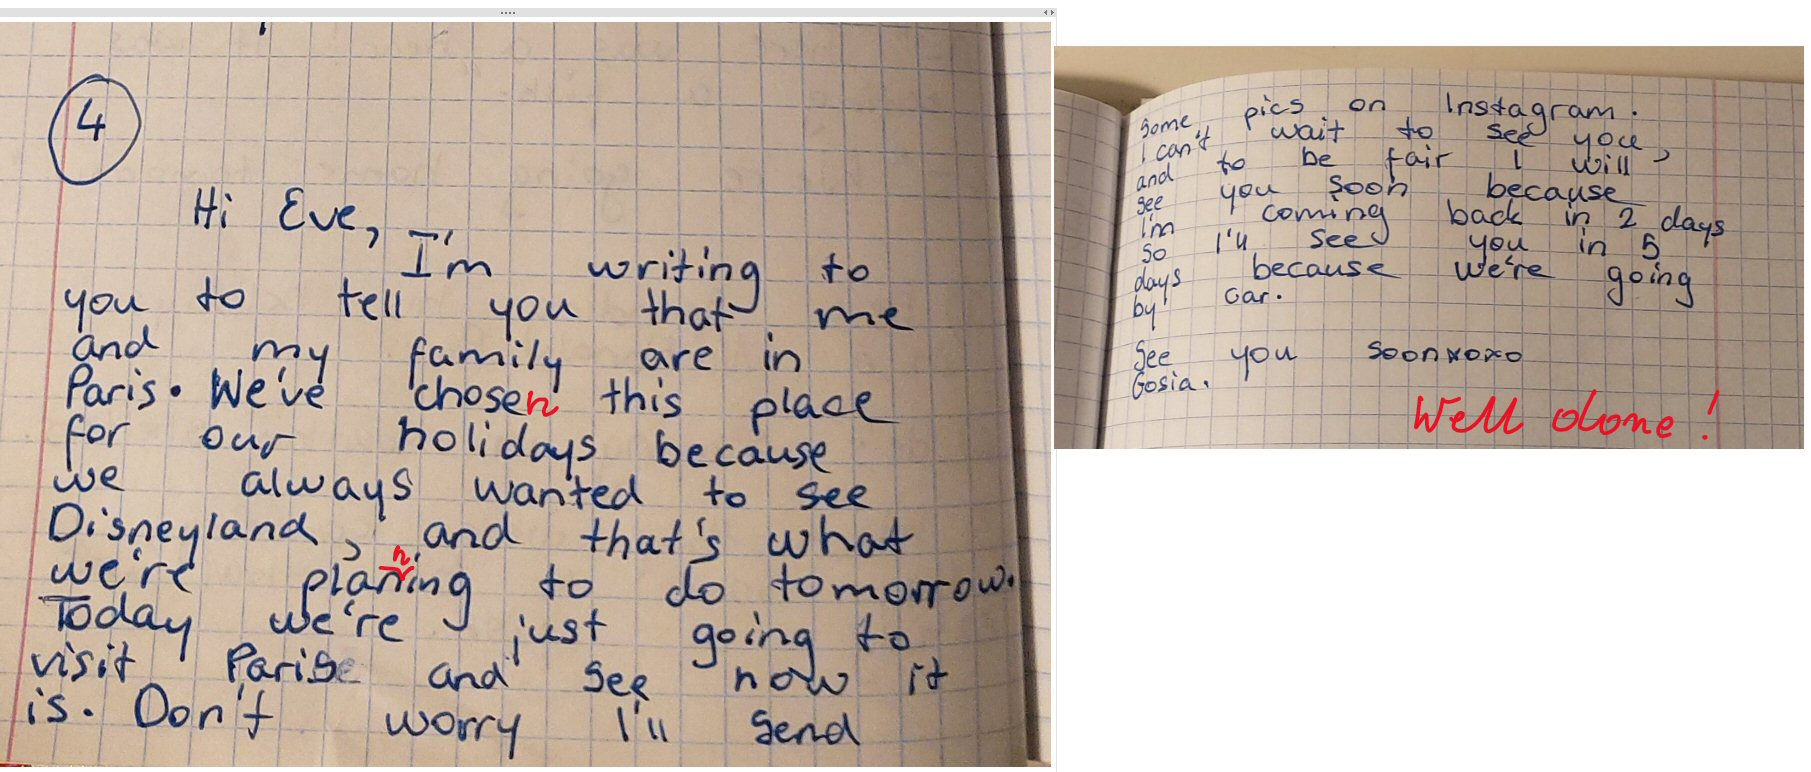 4
Hi Eve,
I'm writing to
you to tell you that me
and my family are in
Paris. We've chosen this place
for our holidays because
we always wanted to see
Disneyland, and that's what
n
we're planing to do tomorrow.
Today we're just going to
visit Paris and see how it
is. Don't worry I'll send
some pics on Instagram.
I can't wait to see you,
and to be fair I will
see you soon because
i'm coming back in 2 days
so I'll see you in 5
days because we're going
by car.
See you soonxoxo
Gosia.
Well done!